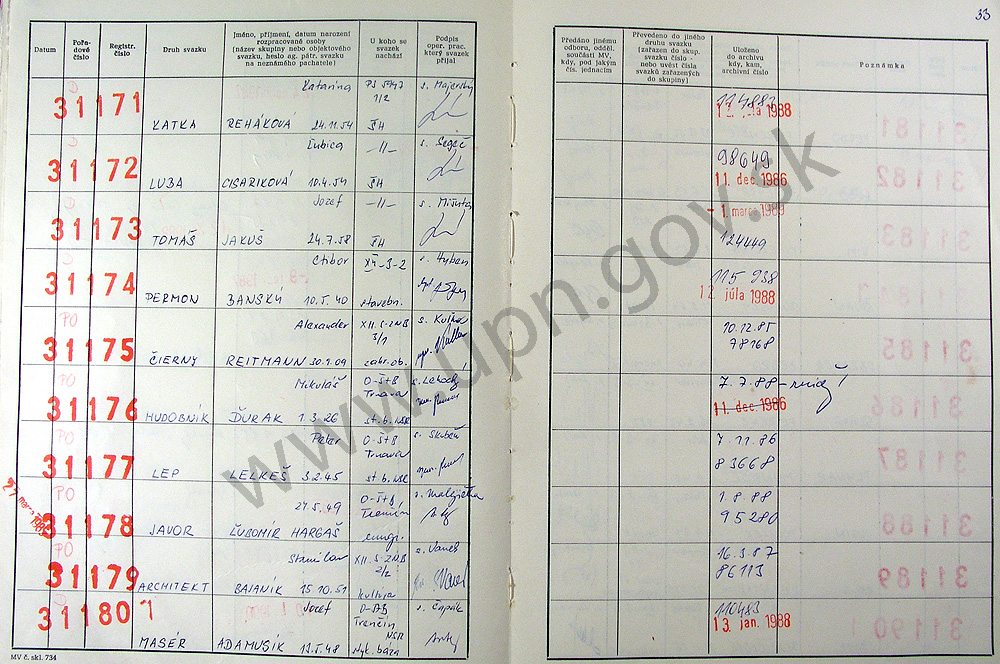 33
Datum
Pořadové číslo
Registr. číslo
Druh svazku
Jméno, příjmení, datum narození rozpracované osoby (název skupiny nebo objektového svazku, heslo ag. pátr. svazku na neznámého pachatele)
U koho se svazek nachází
Podpis oper. prac. který svazek přijal
Předáno jinému odboru, odděl. součásti MV kdy, pod jakým čís. jednacím
Převedeno do jiného druhu svazku (zařazen do skup. svazku číslo - nebo uvést čísla svazků zařazených do skupiny)
Uloženo do archivu kdy, kam, archivní číslo
Poznámka
D
31171
KATKA
Katarína
REHÁKOVÁ 24.11.54
1/2
ŠH
s. Majerský
1988
D
31172
LUBA
Ľubica
CISARIKOVÁ 10.4.54
-11-
ŠH
98649
11 dec. 1986
D
31173
TOMÁŠ
Jozef
JAKUŠ 24.7.58
-11-
ŠH
- 1. marca 1989
124449
D
31174
PERMON
Ctibor
BANSKÝ 10.5.40
XII-S-2
stavebn.
s. Hyben
115 938
12. júla 1988
PO
31175
ČIERNY
Alexander
REITMANN 30.1.09
XII. S-ZNB
3/1
zahr. ob.
10.12.85
78168
PO
31176
HUDOBNÍK
Mikuláš
ĎURAK 1.3.26
O-ŠtB
Trnava
st. b. NSR
7.7.88-
11. dec. 1986
PO
31177
LEP
Peter
KELKEŠ 3.2.45
O-ŠtB
Trnava
st. b. NSR
s. Skubeň
7.11.86
83668
27. marca
PO
31178
JAVOR
27.5.49
ĽUBOMÍR HARGAŠ
O-ŠtB
Trenčín
emigr.
1.8.88
95280
PO
31179
ARCHITEKT
Stanislav
BAJANÍK 15.10.51
XII. S-ZNB
2/2
kultúra
s. Vaneš
16.3.87
86113
D
31180
MASÉR
Jozef
ADAMUŠÍK 13.5.48
Trenčín
NSR
s. Čapák
110483
13. jan. 1988
MV č. skl. 734
www.upn.gov.sk